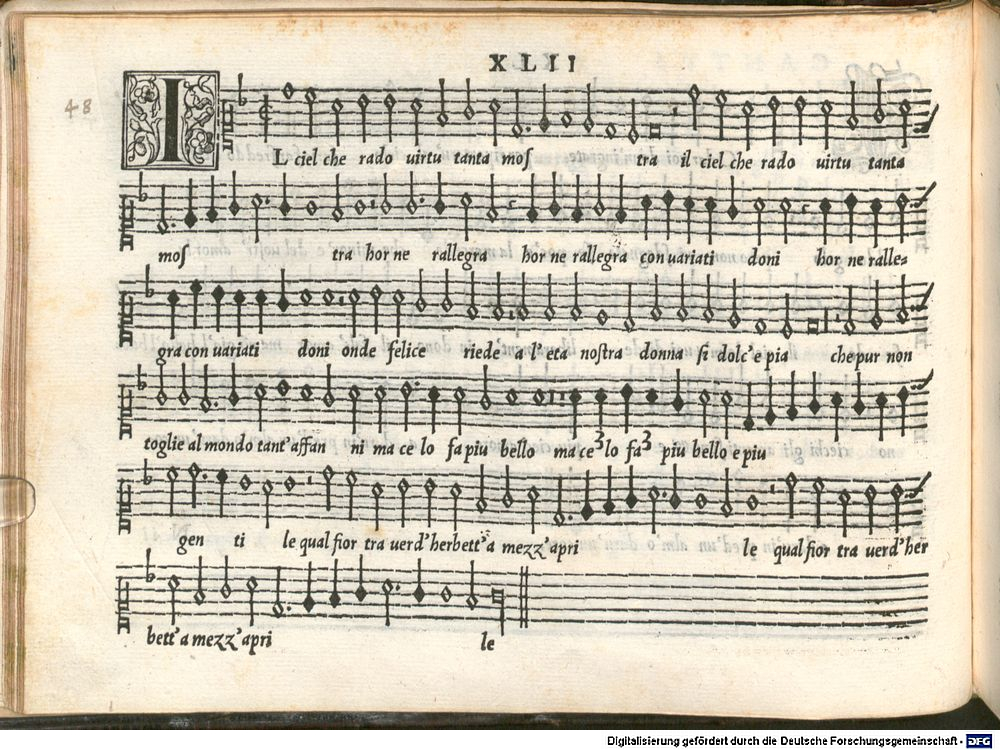 XLII
48
IL ciel che rado uirtu tanta moſ tra il ciel che rado uirtu tanta
moſ tra hor ne rallegra hor ne rallegra con uariati doni hor ne ralle=
gra con uariati doni onde felice riede a l'eta noſtra donna ſi dolc'e pia che pur non
toglie al mondo tant'affan ni ma ce lo fa piu bello ma ce 3 lo fa 3 piu bello e piu
gen ti le qual fior tra uerd'herbett'a mezz'apri le qual fior tra uerd'her
bett'a mezz'apri le
Digitalisierung gefördert durch die Deutsche Forschungsgemeinschaft - DFG